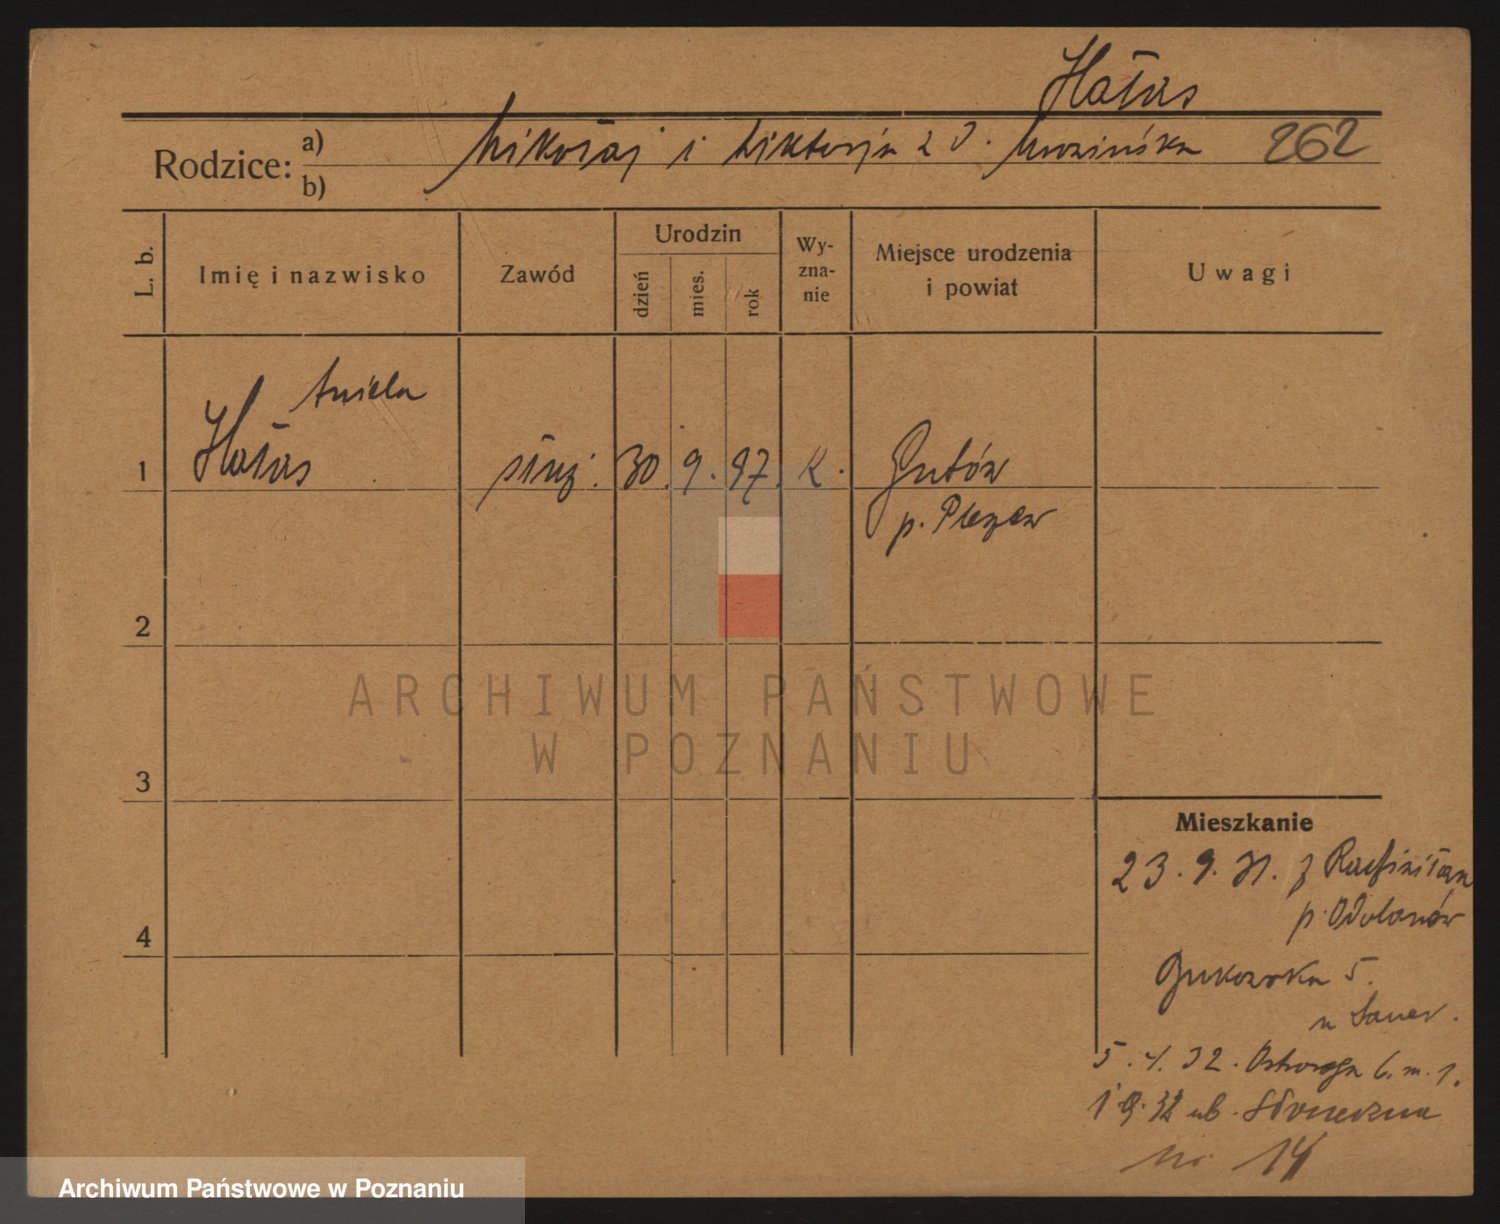 Hałas
Rodzice: a) b) Mikołaj i Wiktorja z d. Mrozińska 262
L. b.
Imię i nazwisko
Zawód
Urodzin
dzień
mies.
rok
Wy-
zna-
nie
Miejsce urodzenia
i powiat
Uwagi
Aniela
1 Hałas służ. 30. 9. 97. K. Gutów
p. Pleszew
2
3
4
ARCHIWUM PAŃSTWOWE
W POZNANIU
Mieszkanie
23. 9. 31. z
p. Odolanów
5.
u Sauer.
5. 4. 32. Ostroroga 6. m. 1.
1. 9. 32 ub. Słoneczna
nr. 14
Archiwum Państwowe w Poznaniu